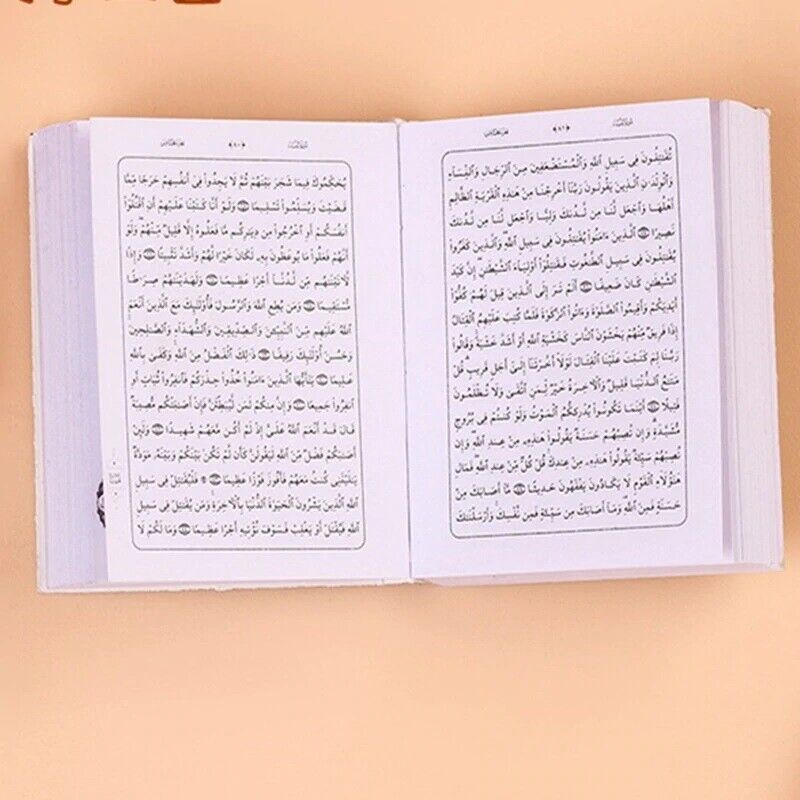 ﴿٨٠﴾
يُحَكِّمُوكَ فِيمَا شَجَرَ بَيْنَهُمْ ثُمَّ لَا يَجِدُوا۟ فِىٓ أَنفُسِهِمْ حَرَجًا مِّمَّا
قَضَيْتَ وَيُسَلِّمُوا۟ تَسْلِيمًا وَلَوْ أَنَّا كَتَبْنَا عَلَيْهِمْ أَنِ ٱقْتُلُوٓا۟
أَنفُسَكُمْ أَوِ ٱخْرُجُوا۟ مِن دِيَـٰرِكُم مَّا فَعَلُوهُ إِلَّا قَلِيلٌ مِّنْهُمْ وَلَوْ
أَنَّهُمْ فَعَلُوا۟ مَا يُوعَظُونَ بِهِۦ لَكَانَ خَيْرًا لَّهُمْ وَأَشَدَّ تَثْبِيتًا وَإِذًا
لَّـَٔاتَيْنَـٰهُم مِّن لَّدُنَّآ أَجْرًا عَظِيمًا وَلَهَدَيْنَـٰهُمْ صِرَٰطًا
مُّسْتَقِيمًا وَمَن يُطِعِ ٱللَّهَ وَٱلرَّسُولَ فَأُو۟لَـٰٓئِكَ مَعَ ٱلَّذِينَ أَنْعَمَ
ٱللَّهُ عَلَيْهِم مِّنَ ٱلنَّبِيِّـۧنَ وَٱلصِّدِّيقِينَ وَٱلشُّهَدَآءِ وَٱلصَّـٰلِحِينَ
وَحَسُنَ أُو۟لَـٰٓئِكَ رَفِيقًا ذَٰلِكَ ٱلْفَضْلُ مِنَ ٱللَّهِ وَكَفَىٰ بِٱللَّهِ
عَلِيمًا يَـٰٓأَيُّهَا ٱلَّذِينَ ءَامَنُوا۟ خُذُوا۟ حِذْرَكُمْ فَٱنفِرُوا۟ ثُبَاتٍ أَوِ
ٱنفِرُوا۟ جَمِيعًا وَإِنَّ مِنكُمْ لَمَن لَّيُبَطِّئَنَّ فَإِنْ أَصَـٰبَتْكُم مُّصِيبَةٌ
قَالَ قَدْ أَنْعَمَ ٱللَّهُ عَلَىَّ إِذْ لَمْ أَكُن مَّعَهُمْ شَهِيدًا وَلَئِنْ
أَصَـٰبَكُمْ فَضْلٌ مِّنَ ٱللَّهِ لَيَقُولَنَّ كَأَن لَّمْ تَكُنۢ بَيْنَكُمْ وَبَيْنَهُۥ مَوَدَّةٌ
يَـٰلَيْتَنِى كُنتُ مَعَهُمْ فَأَفُوزَ فَوْزًا عَظِيمًا فَلْيُقَـٰتِلْ فِى سَبِيلِ
ٱللَّهِ ٱلَّذِينَ يَشْرُونَ ٱلْحَيَوٰةَ ٱلدُّنْيَا بِٱلْـَٔاخِرَةِ وَمَن يُقَـٰتِلْ فِى سَبِيلِ
ٱللَّهِ فَيُقْتَلْ أَوْ يَغْلِبْ فَسَوْفَ نُؤْتِيهِ أَجْرًا عَظِيمًا وَمَا لَكُمْ لَا
﴿٨١﴾
تُقَـٰتِلُونَ فِى سَبِيلِ ٱللَّهِ وَٱلْمُسْتَضْعَفِينَ مِنَ ٱلرِّجَالِ وَٱلنِّسَآءِ
وَٱلْوِلْدَٰنِ ٱلَّذِينَ يَقُولُونَ رَبَّنَآ أَخْرِجْنَا مِنْ هَـٰذِهِ ٱلْقَرْيَةِ ٱلظَّالِمِ
أَهْلُهَا وَٱجْعَل لَّنَا مِن لَّدُنكَ وَلِيًّا وَٱجْعَل لَّنَا مِن لَّدُنكَ
نَصِيرًا ٱلَّذِينَ ءَامَنُوا۟ يُقَـٰتِلُونَ فِى سَبِيلِ ٱللَّهِ وَٱلَّذِينَ كَفَرُوا۟
يُقَـٰتِلُونَ فِى سَبِيلِ ٱلطَّـٰغُوتِ فَقَـٰتِلُوٓا۟ أَوْلِيَآءَ ٱلشَّيْطَـٰنِ إِنَّ كَيْدَ
ٱلشَّيْطَـٰنِ كَانَ ضَعِيفًا أَلَمْ تَرَ إِلَى ٱلَّذِينَ قِيلَ لَهُمْ كُفُّوٓا۟
أَيْدِيَكُمْ وَأَقِيمُوا۟ ٱلصَّلَوٰةَ وَءَاتُوا۟ ٱلزَّكَوٰةَ فَلَمَّا كُتِبَ عَلَيْهِمُ ٱلْقِتَالُ
إِذَا فَرِيقٌ مِّنْهُمْ يَخْشَوْنَ ٱلنَّاسَ كَخَشْيَةِ ٱللَّهِ أَوْ أَشَدَّ خَشْيَةً وَقَالُوا۟
رَبَّنَا لِمَ كَتَبْتَ عَلَيْنَا ٱلْقِتَالَ لَوْلَآ أَخَّرْتَنَآ إِلَىٰٓ أَجَلٍ قَرِيبٍ قُلْ
مَتَـٰعُ ٱلدُّنْيَا قَلِيلٌ وَٱلْـَٔاخِرَةُ خَيْرٌ لِّمَنِ ٱتَّقَىٰ وَلَا تُظْلَمُونَ
فَتِيلًا أَيْنَمَا تَكُونُوا۟ يُدْرِككُّمُ ٱلْمَوْتُ وَلَوْ كُنتُمْ فِى بُرُوجٍ
مُّشَيَّدَةٍ وَإِن تُصِبْهُمْ حَسَنَةٌ يَقُولُوا۟ هَـٰذِهِۦ مِنْ عِندِ ٱللَّهِ وَإِن
تُصِبْهُمْ سَيِّئَةٌ يَقُولُوا۟ هَـٰذِهِۦ مِنْ عِندِكَ قُلْ كُلٌّ مِّنْ عِندِ ٱللَّهِ فَمَالِ
هَـٰٓؤُلَآءِ ٱلْقَوْمِ لَا يَكَادُونَ يَفْقَهُونَ حَدِيثًا مَّآ أَصَابَكَ مِنْ
حَسَنَةٍ فَمِنَ ٱللَّهِ وَمَآ أَصَابَكَ مِن سَيِّئَةٍ فَمِن نَّفْسِكَ وَأَرْسَلْنَـٰكَ